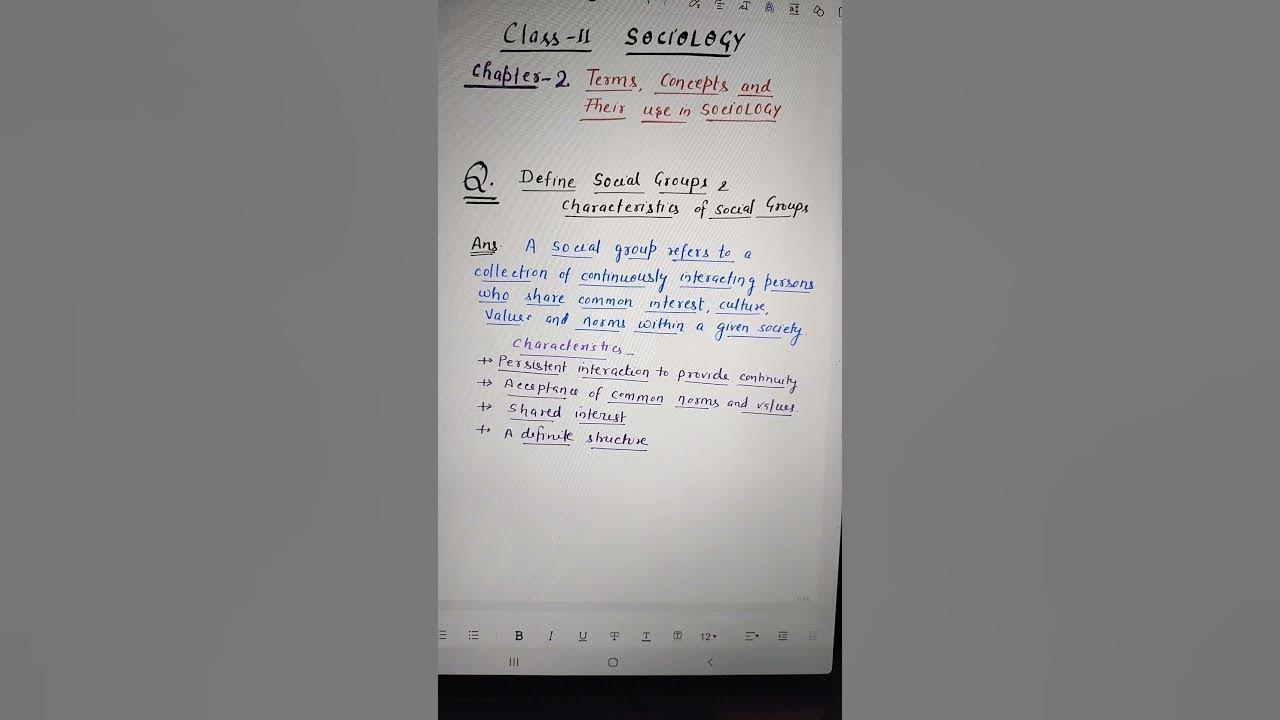 Class-11 SOCiOLOGY
Chapter-2 Terms, Concepts and
Their use in SOCiOLOGY
Q. Define Social Groups &
Characteristics of social Groups
Ans. A social group refers to a
collection of continuously interacting persons
who share common interest, culture,
Values and norms within a given society.
Characteristics -
→ Persistent interaction to provide continuity
→ Acceptance of common norms and values.
→ Shared interest
→ A definite structure
B I U T T T 12